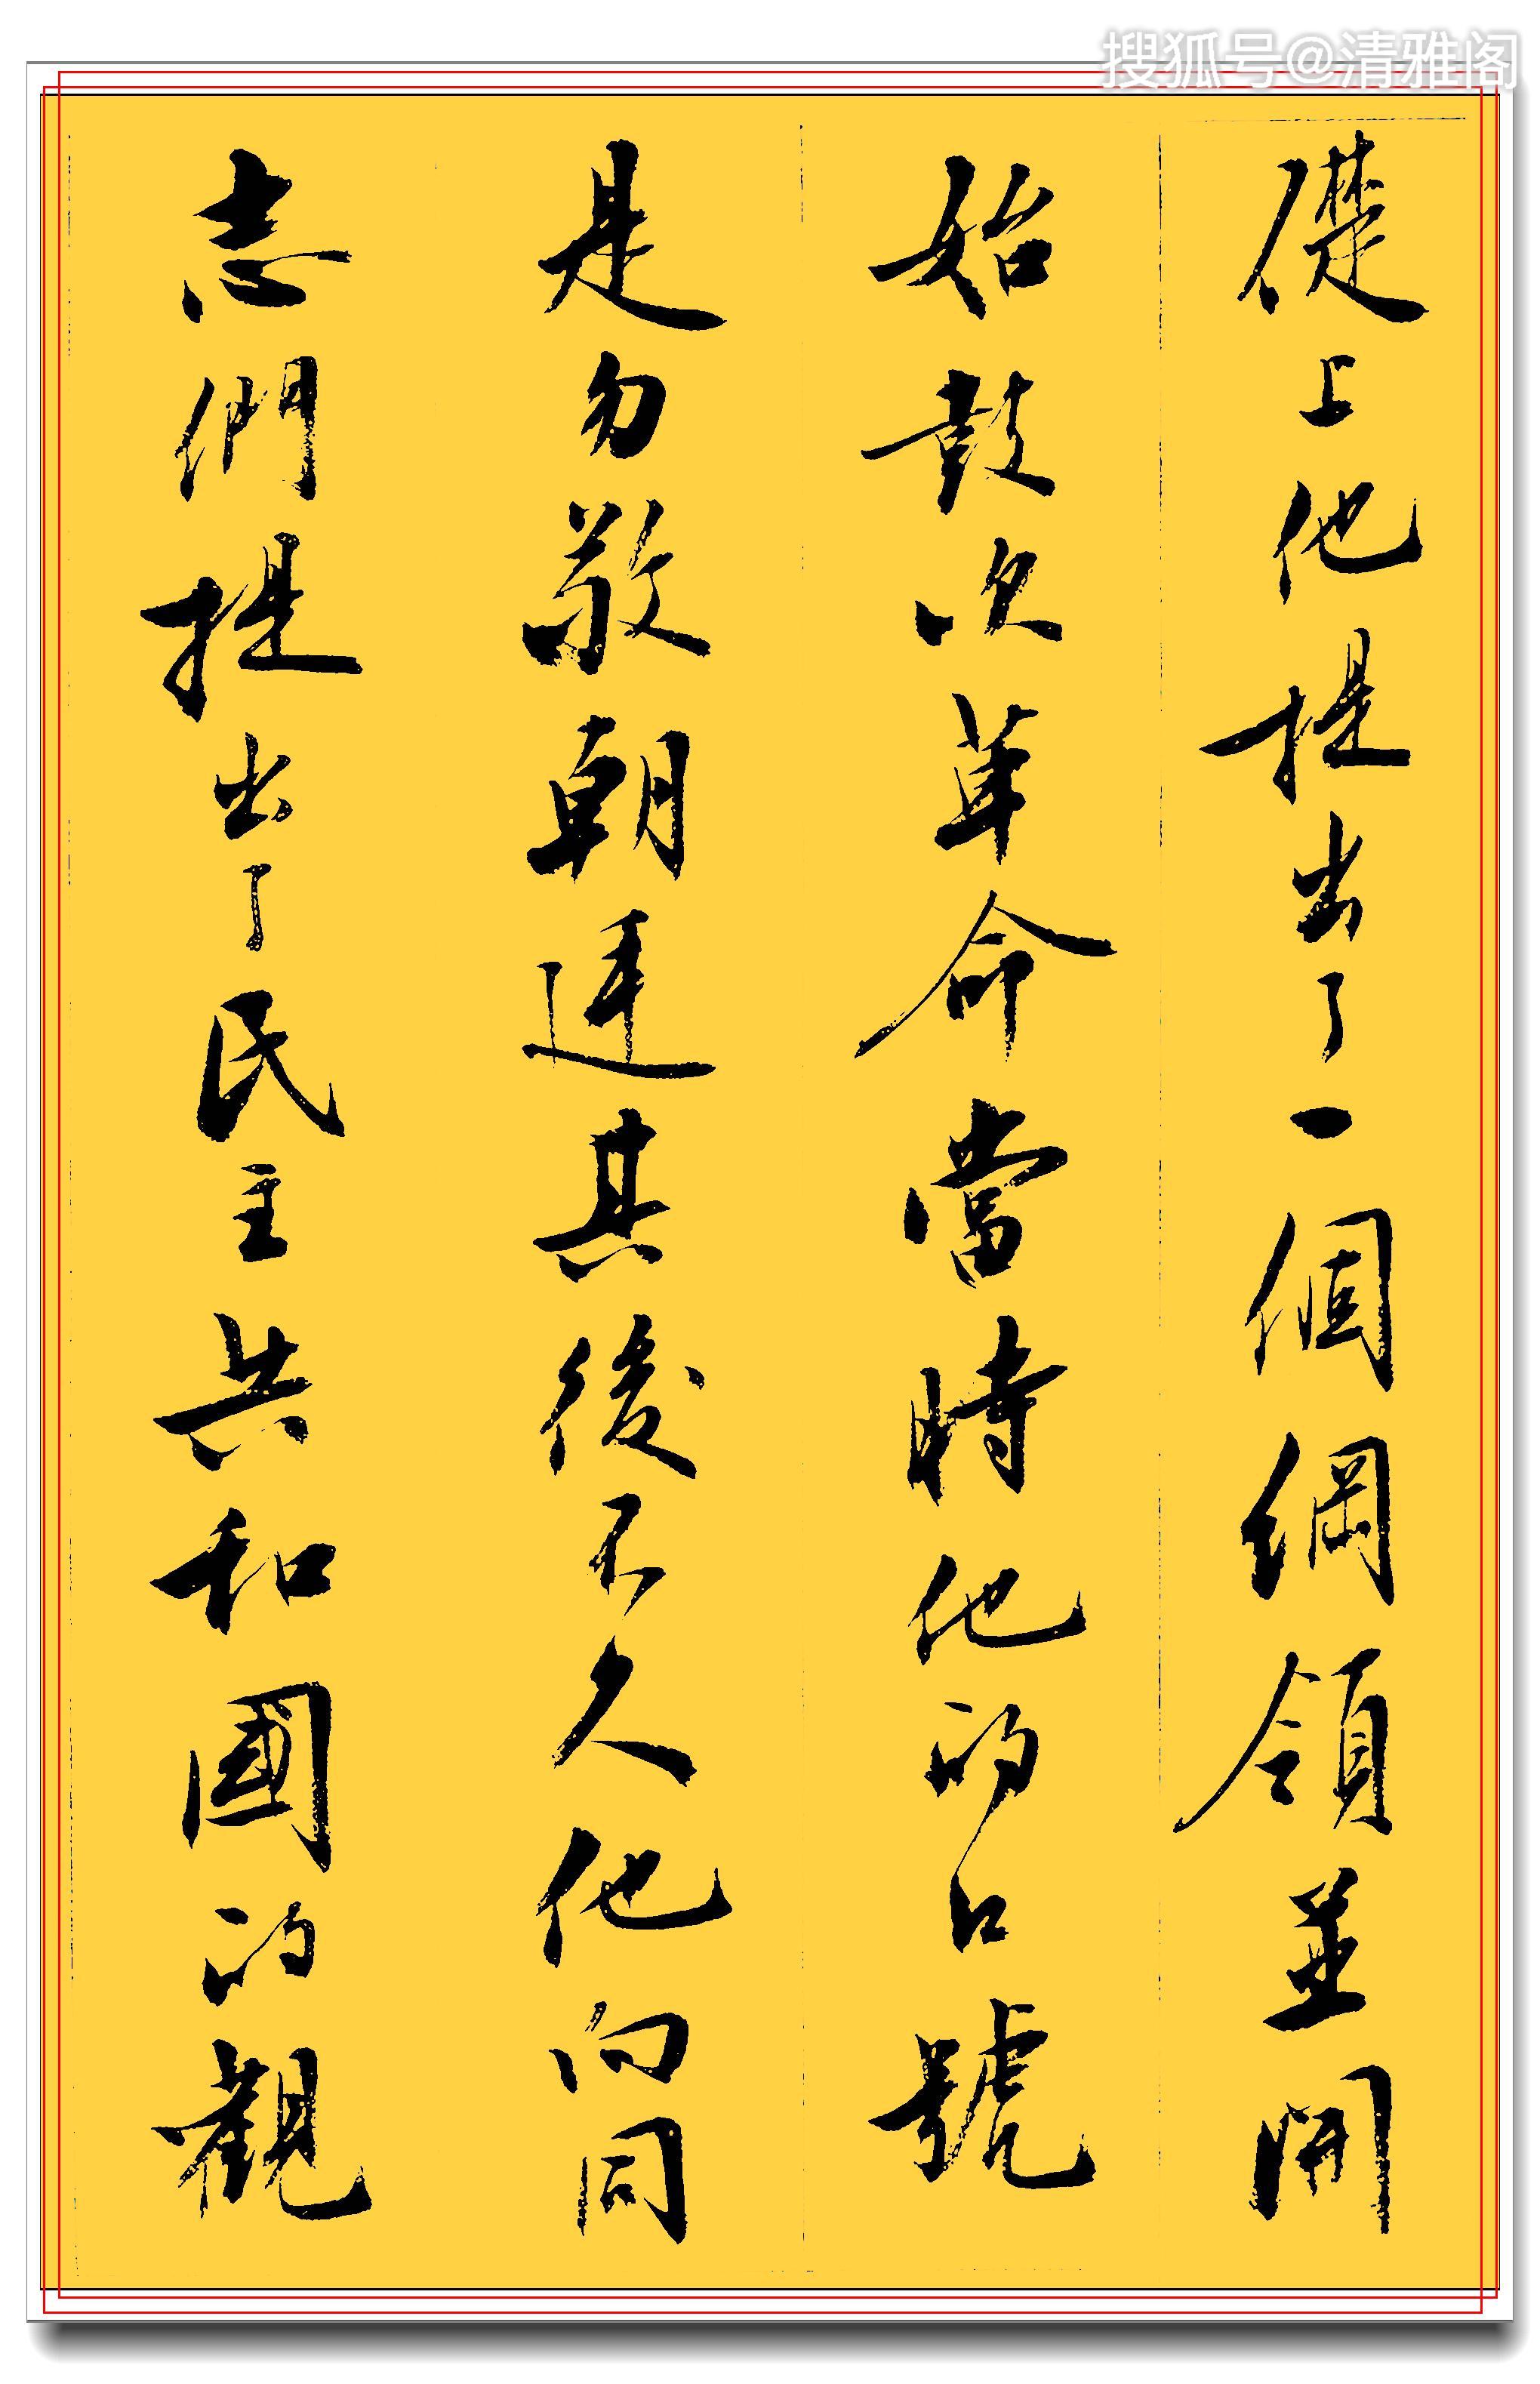 搜狐号@清雅阁
礎上他提出了一個綱領並開
始鼓吹革命當時他的口號
是勿敬朝廷其後不久他向同
志們提出了民主共和國的觀